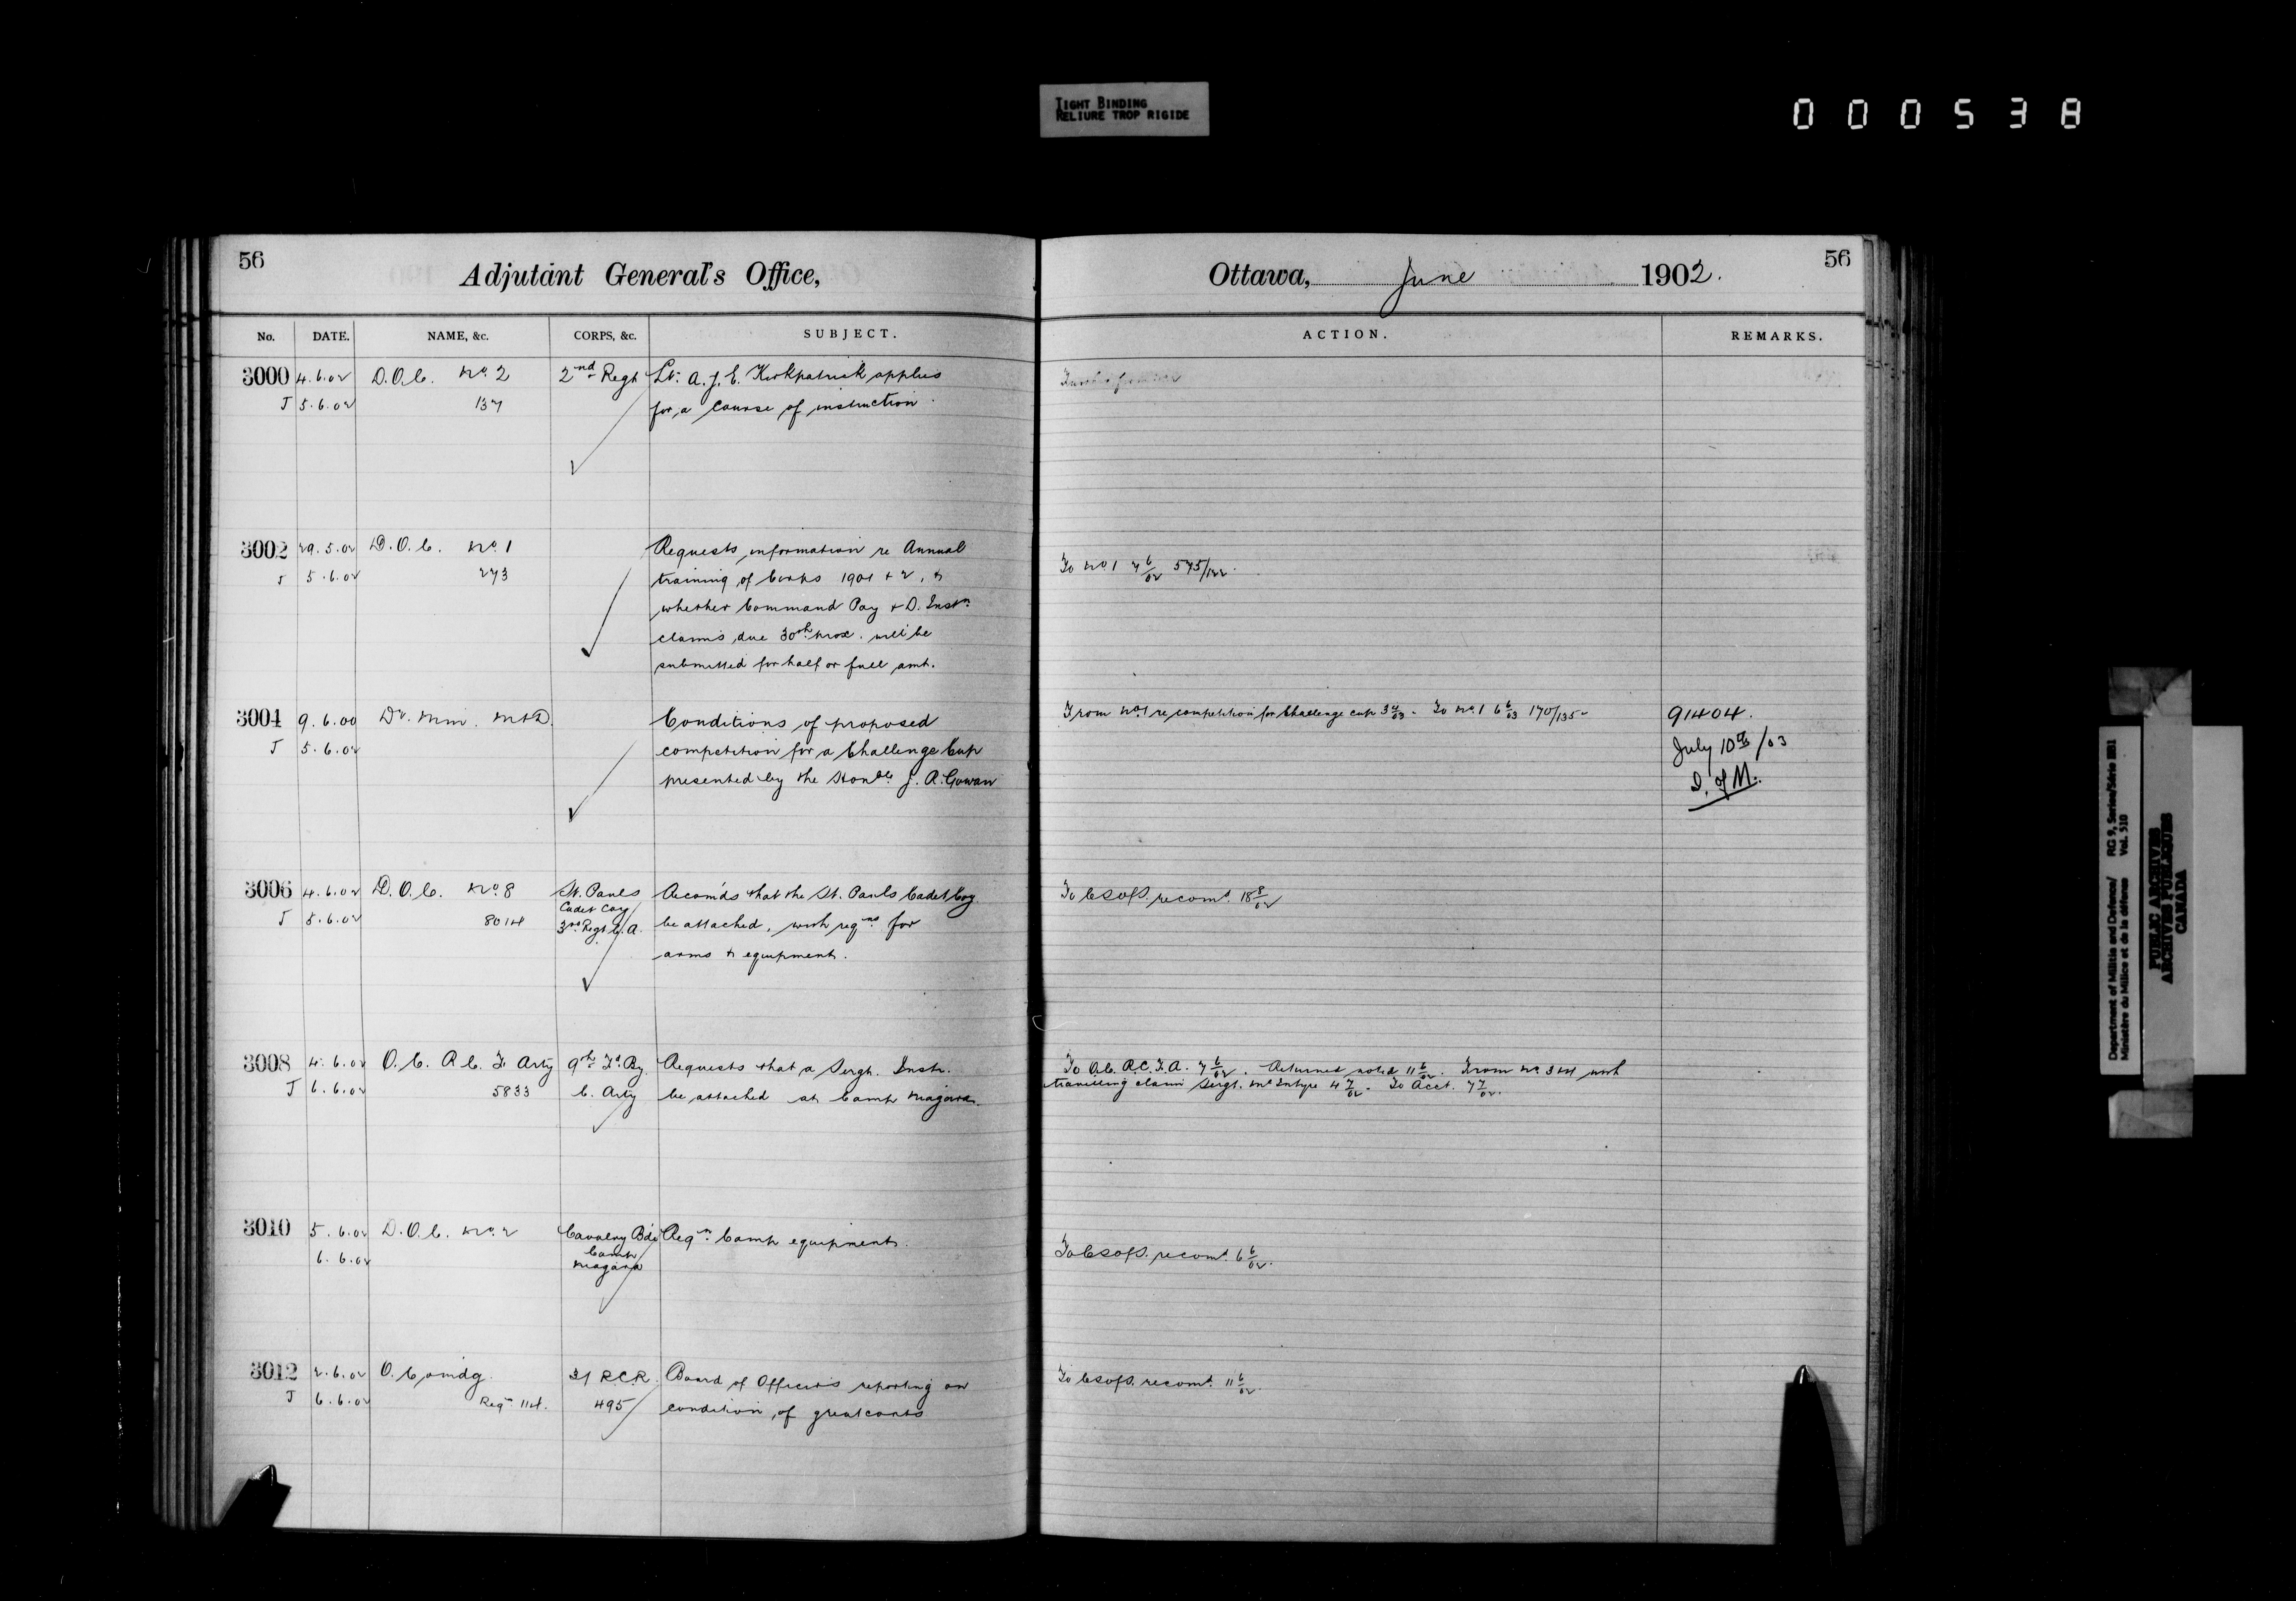 TIGHT BINDING
RELIURE TROP RIGIDE
000538
56
Adjutant General's Office,
No. DATE. NAME, &c. CORPS, &c. SUBJECT.
3000 4.6.02 D.O.C. No. 2 2nd Regt Lt. A. J. E. Kirkpatrick applies
J 5.6.02 137 for a course of instruction
3002 29.5.02 D.O.C. No. 1 Requests information re Annual
J 5.6.02 273 training of Corps 1901 & 2, &
whether Command Pay & D. Instn
claims due 30th prox. will be
submitted for half or full amt.
3004 9.6.00 Dy. Min. M&D. Conditions of proposed
J 5.6.02 competition for a Challenge Cup
presented by the Honble J. R. Gowan
3006 4.6.02 D.O.C. No. 8 St. Pauls Recomds that the St. Pauls Cadet Coy
Cadet Coy
J 5.6.02 8014 3rd Regt C.A. be attached, with reqns for
arms & equipment.
3008 4.6.02 O.C. R.C. F. Arty 9th Fd. By Requests that a Sergt. Instr.
J 6.6.02 5833 C. Arty be attached at Camp Niagara.
3010 5.6.02 D.O.C. No. 2 Cavalry Bde Reqn Camp equipment.
6.6.02 Camp
Niagara
3012 2.6.02 O. Comdg. 31 RCR Board of Officers reporting on
J 6.6.02 495 condition of greatcoats
56
Ottawa, June 1902.
ACTION. REMARKS.
To No. 1 7 6/02 575/122.
From No. 1 re competition for Challenge cup 3 4/03 - To No. 1 6 6/03 170/135 - 91404.
July 10th/03
D. of M.
To CSofS. recomd. 18 8/02
To O.C. R.C.F.A. 7 6/02. Returned noted 11 6/02. From No. 3 with
travelling claim Sergt. McIntyre 4 7/02. To Acct. 7 7/02.
To CSofS. recomd. 6 6/02.
To CSofS. recomd. 11 6/02.
Department of Militia and Defence/ RG 9, Series/Série IIB1
Ministère du Milice et de la défense Vol. 510
PUBLIC ARCHIVES
ARCHIVES PUBLIQUES
CANADA